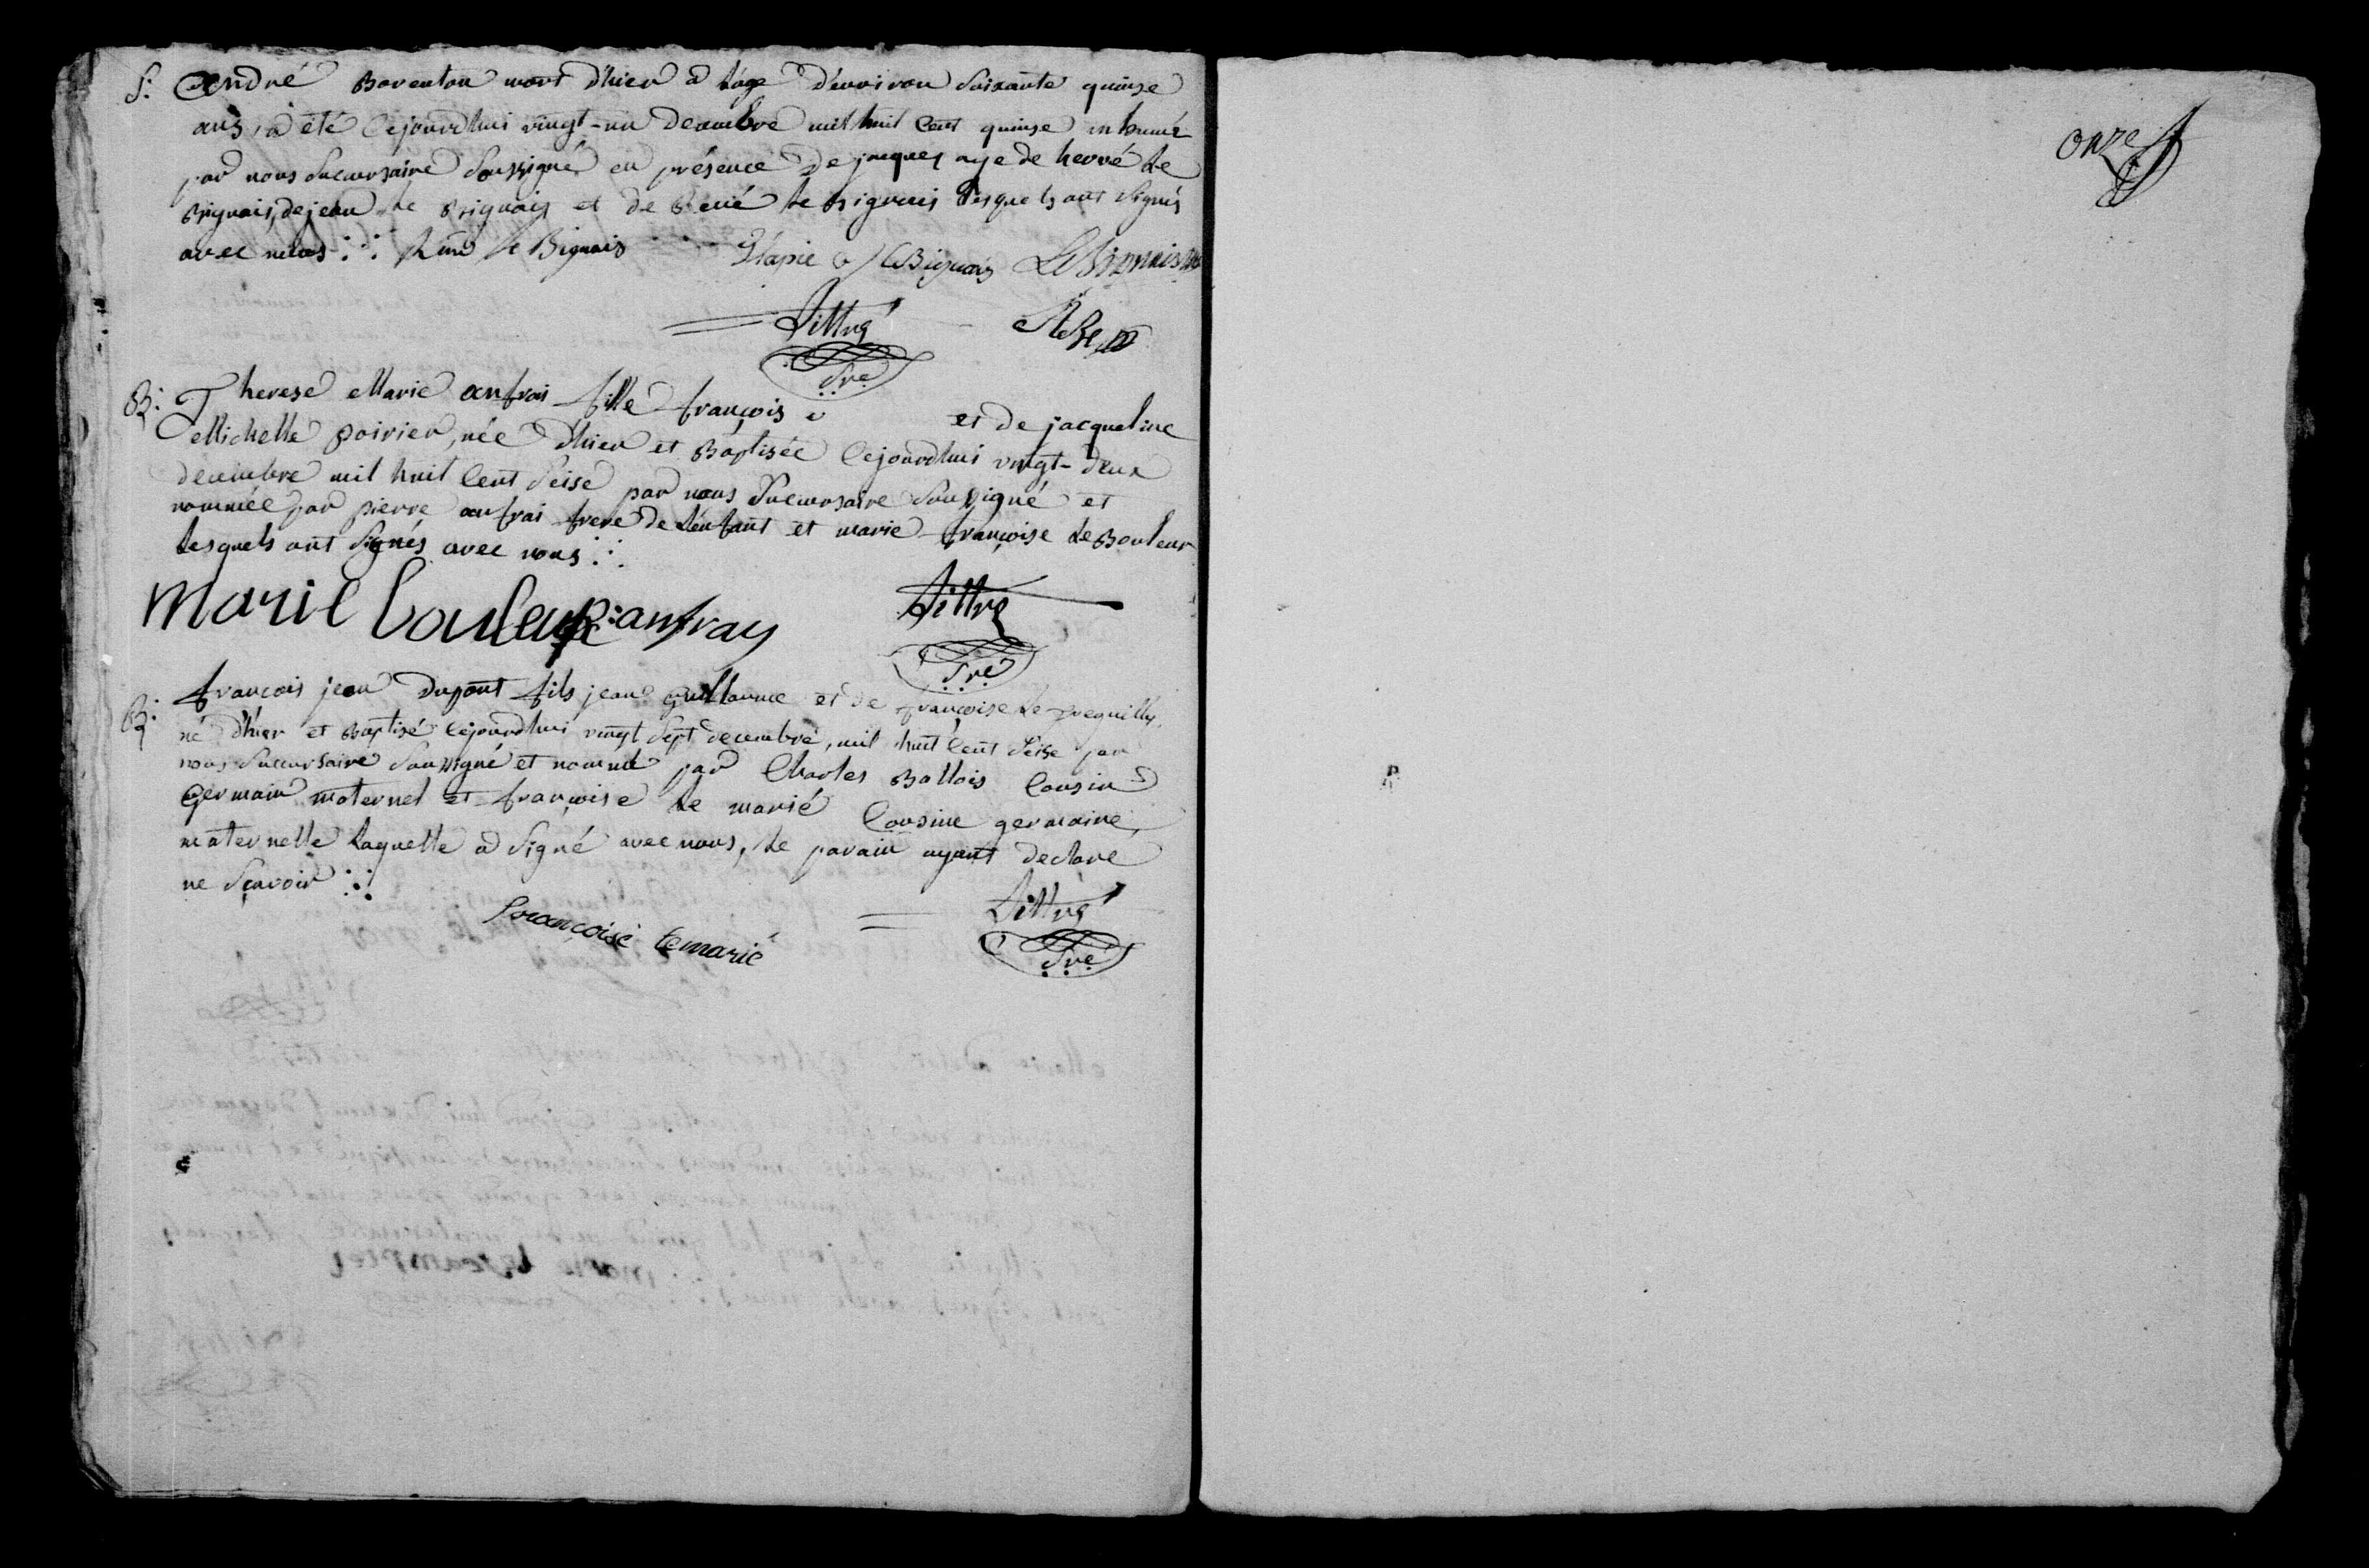 S: André Boventon mort d'hier a l'age d'environ Soixante quinse
ans, a été Cejourdhui vingt-un decembre mil huit Cent quinse inhumé
par nous Succursaire Soussigné en présence de jacques aze de hervé Le
Bignais, de jean Le Bignais et de René Le Bignais Lesquels ont Signés
avec nous René le Bignais LeBignais LeBignais
Littré
Sre
B: Therese Marie anfrai fille françois et de jacqueline
Michelle poirier, née d'hier et Baptisée Cejourdhui vingt-deux
decembre mil huit Cent Seise par nous Succursaire Soussigné et
nommée par pierre anfrai frere de L'enfant et marie françoise Le Bouleur
Lesquels ont Signés avec nous
Marie Bouleur P: anfray
Littré
Sre
B: françois jean Dupont fils jean Guillaume et de françoise Le
né d'hier et Baptisé Cejourdhui vingt Sept decembre, mil huit Cent Seise par
nous Succursaire Soussigné et nommé par Charles Ballois Cousin
Germain maternel et françoise Le marié Cousine germaine
maternelle Laquelle a Signé avec nous, Le parain ayant declaré
ne Sçavoir
françoise lemarié
Littré
Sre
onze